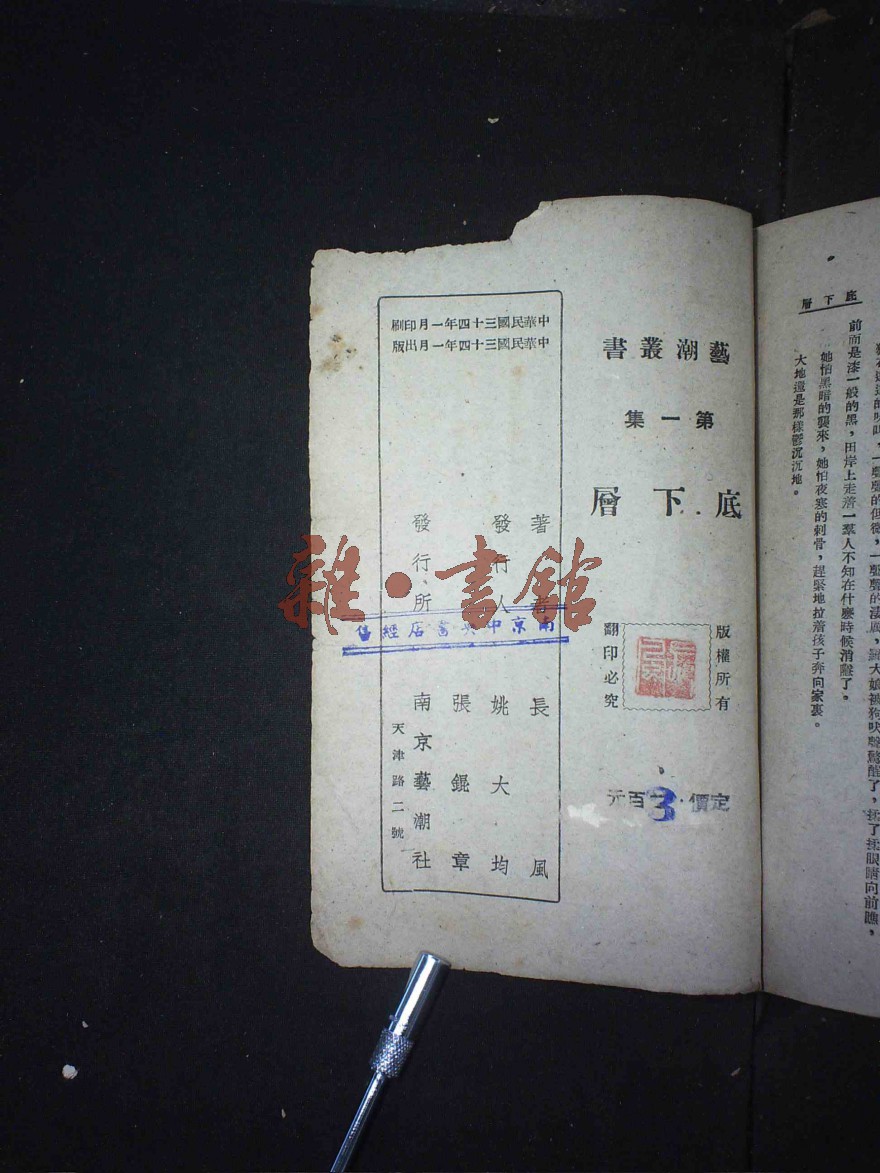 底下層
一聲聲的淒厲，歸大娘被狗吠聲驚醒了，揉了揉眼睛向前瞧，
前面是漆一般的黑，田岸上走着一羣人不知在什麽時候消散了。
她怕黑暗的襲來，她怕夜寒的刺骨，趕緊地拉着孩子奔向家裏。
大地還是那樣鬱沉沉地。
藝潮叢書
第一集
底下層
版權所有
翻印必究
定價·3百元
中華民國三十四年一月印刷
中華民國三十四年一月出版
著 長風
發行人 姚大均
張錕章
發行所 南京藝潮社
天津路二號
南京中央書店經售
雜·書館